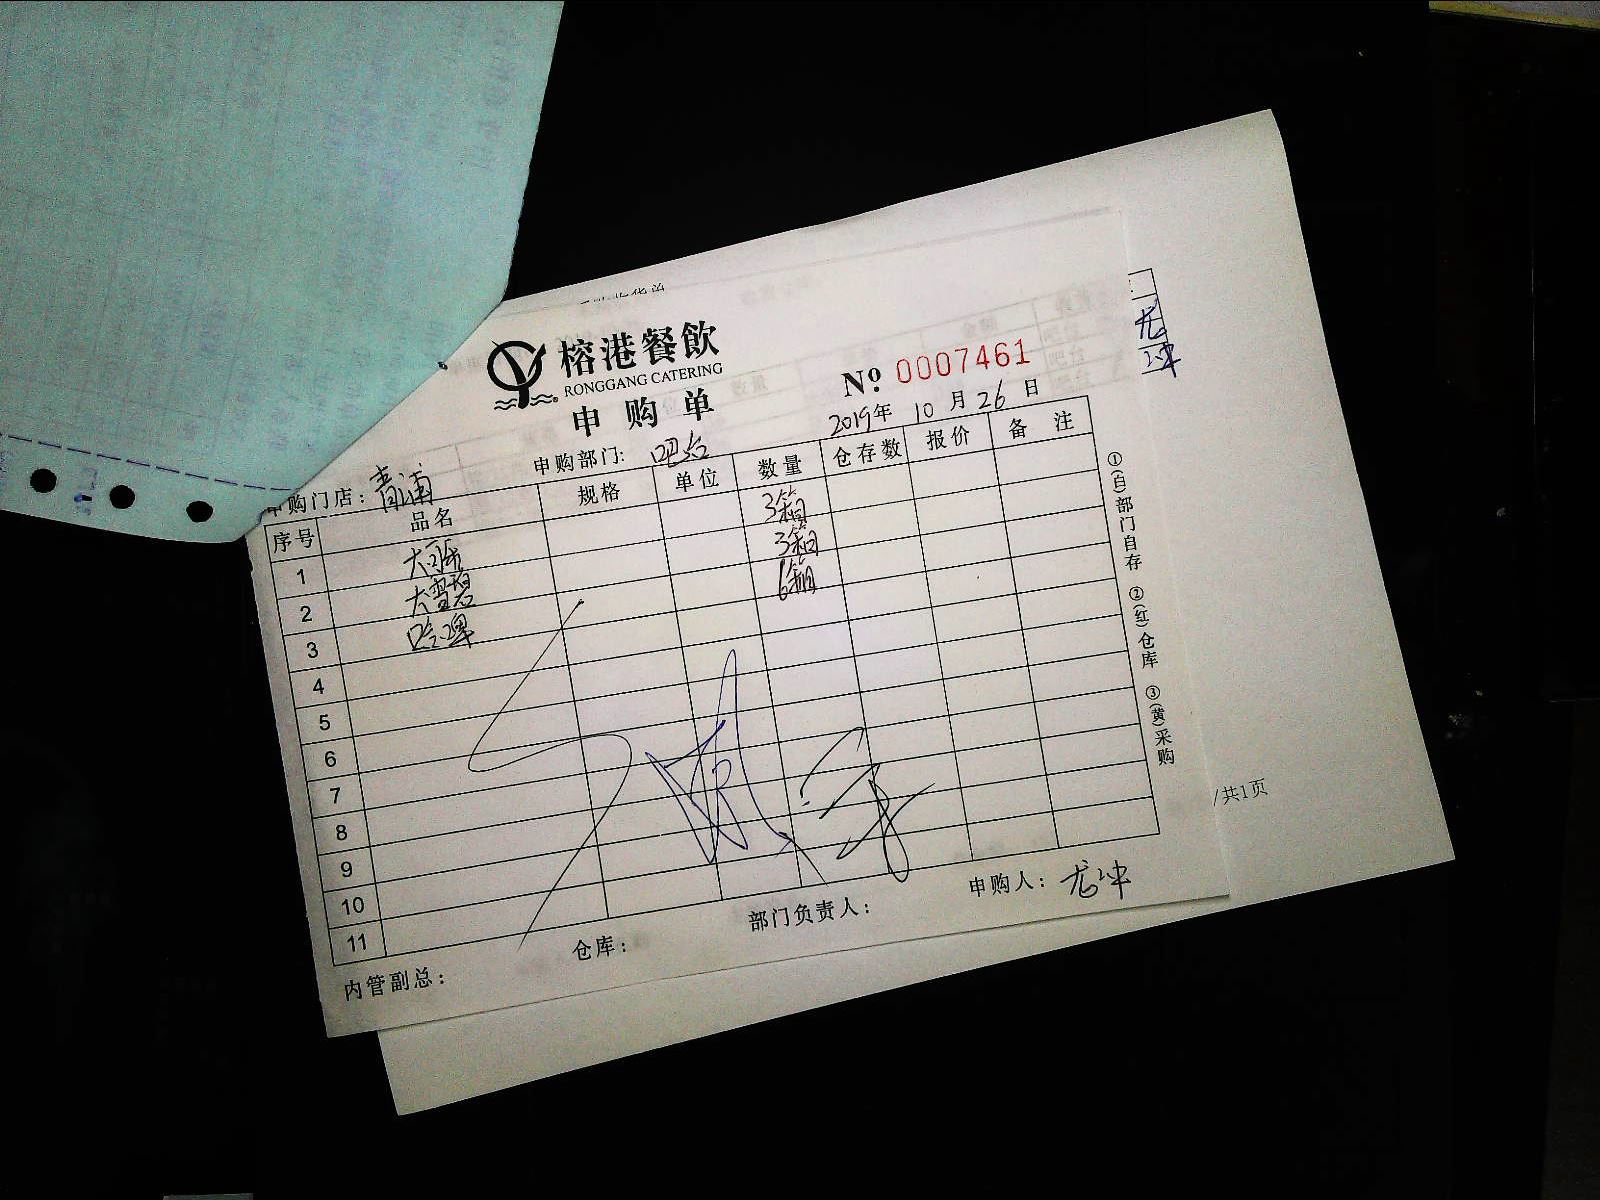 榕港餐飲
RONGGANG CATERING
申购单
№ 0007461
2019年 10 月 26 日
申购门店：青浦 申购部门：吧台
序号 品名 规格 单位 数量 仓存数 报价 备注
1 大可乐 3箱
2 大雪碧 3箱
3 哈啤 6箱
4
5
6
7
8
9
10
11
内管副总： 仓库： 部门负责人： 申购人：龙冲
①(白)部门自存 ②(红)仓库 ③(黄)采购
龙冲
/共1页